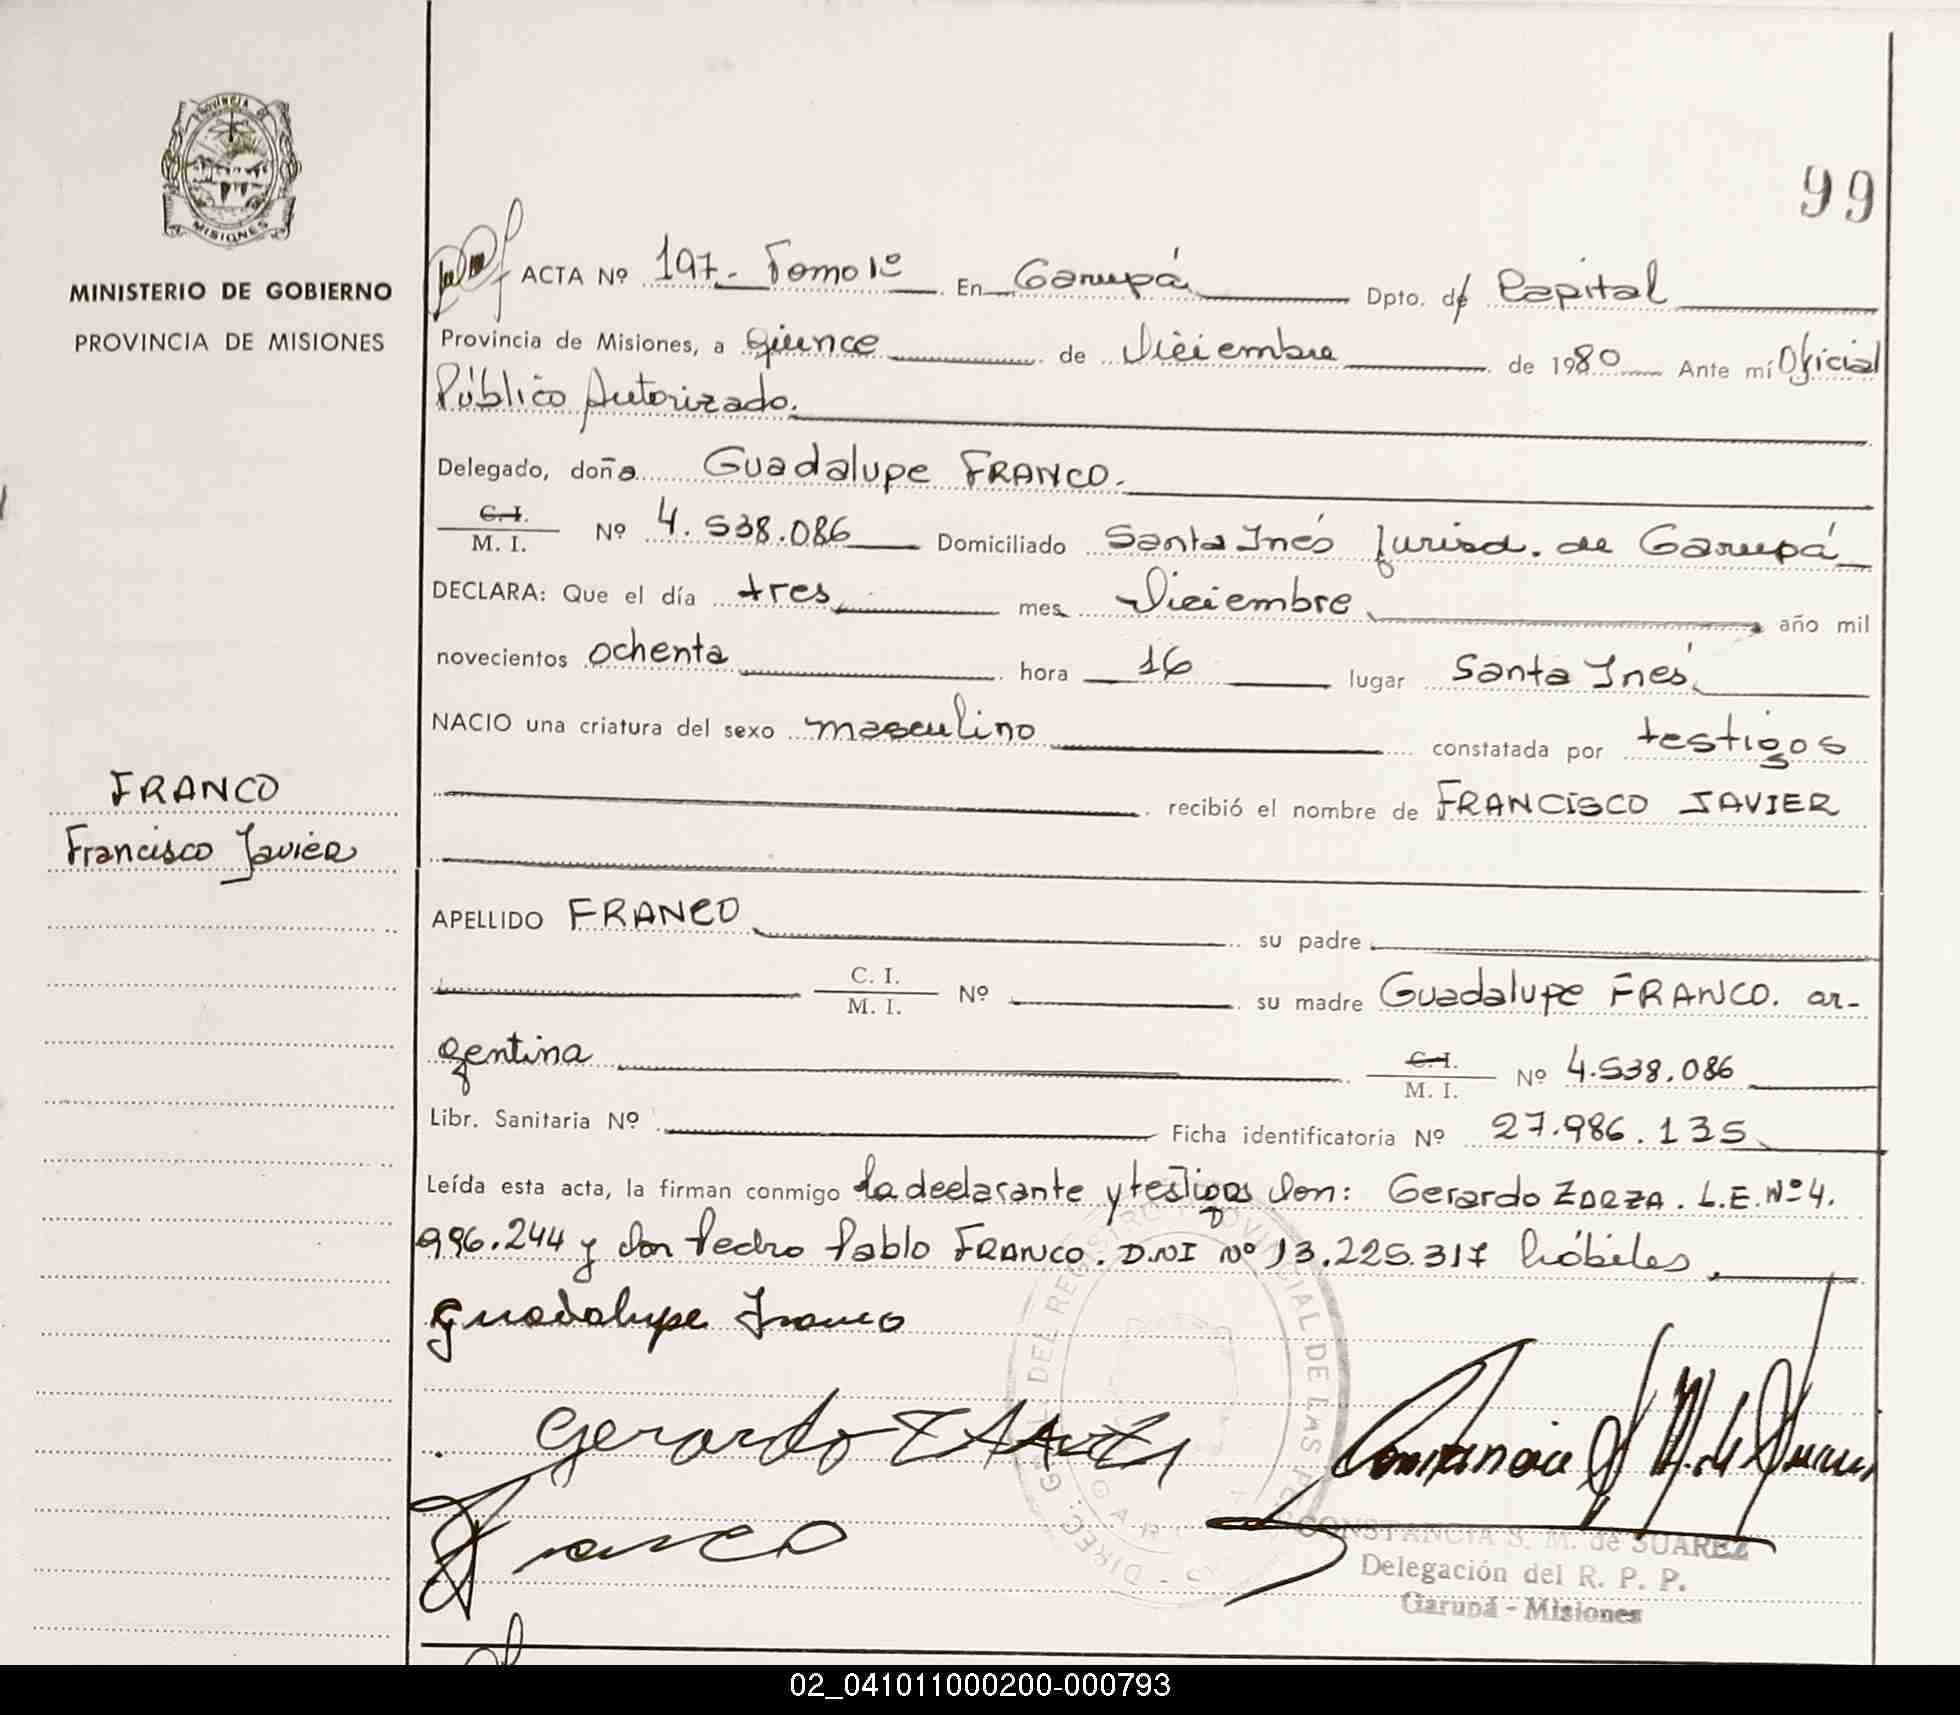 99
PROVINCIA DE
MISIONES
MINISTERIO DE GOBIERNO
PROVINCIA DE MISIONES
ACTA Nº 197.- Tomo 1º En Garupá Dpto. de Capital
Provincia de Misiones, a quince de Diciembre de 1980 Ante mí Oficial
Público Autorizado.
Delegado, doña Guadalupe FRANCO.
C. I.
M. I. Nº 4.538.086 Domiciliado Santa Inés Jurisd. de Garupá
DECLARA: Que el día tres mes Diciembre año mil
novecientos ochenta hora 16 lugar Santa Inés
NACIO una criatura del sexo masculino constatada por testigos
recibió el nombre de FRANCISCO JAVIER
FRANCO
Francisco Javier
APELLIDO FRANCO su padre
C. I.
M. I. Nº su madre Guadalupe FRANCO. ar-
gentina C. I.
M. I. Nº 4.538.086
Libr. Sanitaria Nº Ficha identificatoria Nº 27.986.135
Leída esta acta, la firman conmigo la declarante y testigos Don: Gerardo ZARZA. L.E. Nº 4.
996.244 y don Pedro Pablo FRANCO. D.N.I Nº 13.225.317 hábiles
Guadalupe Franco
Gerardo ZARZA
Franco
CONSTANCIA S. M. de SUAREZ
Delegación del R. P. P.
Garupá - Misiones
02_041011000200-000793